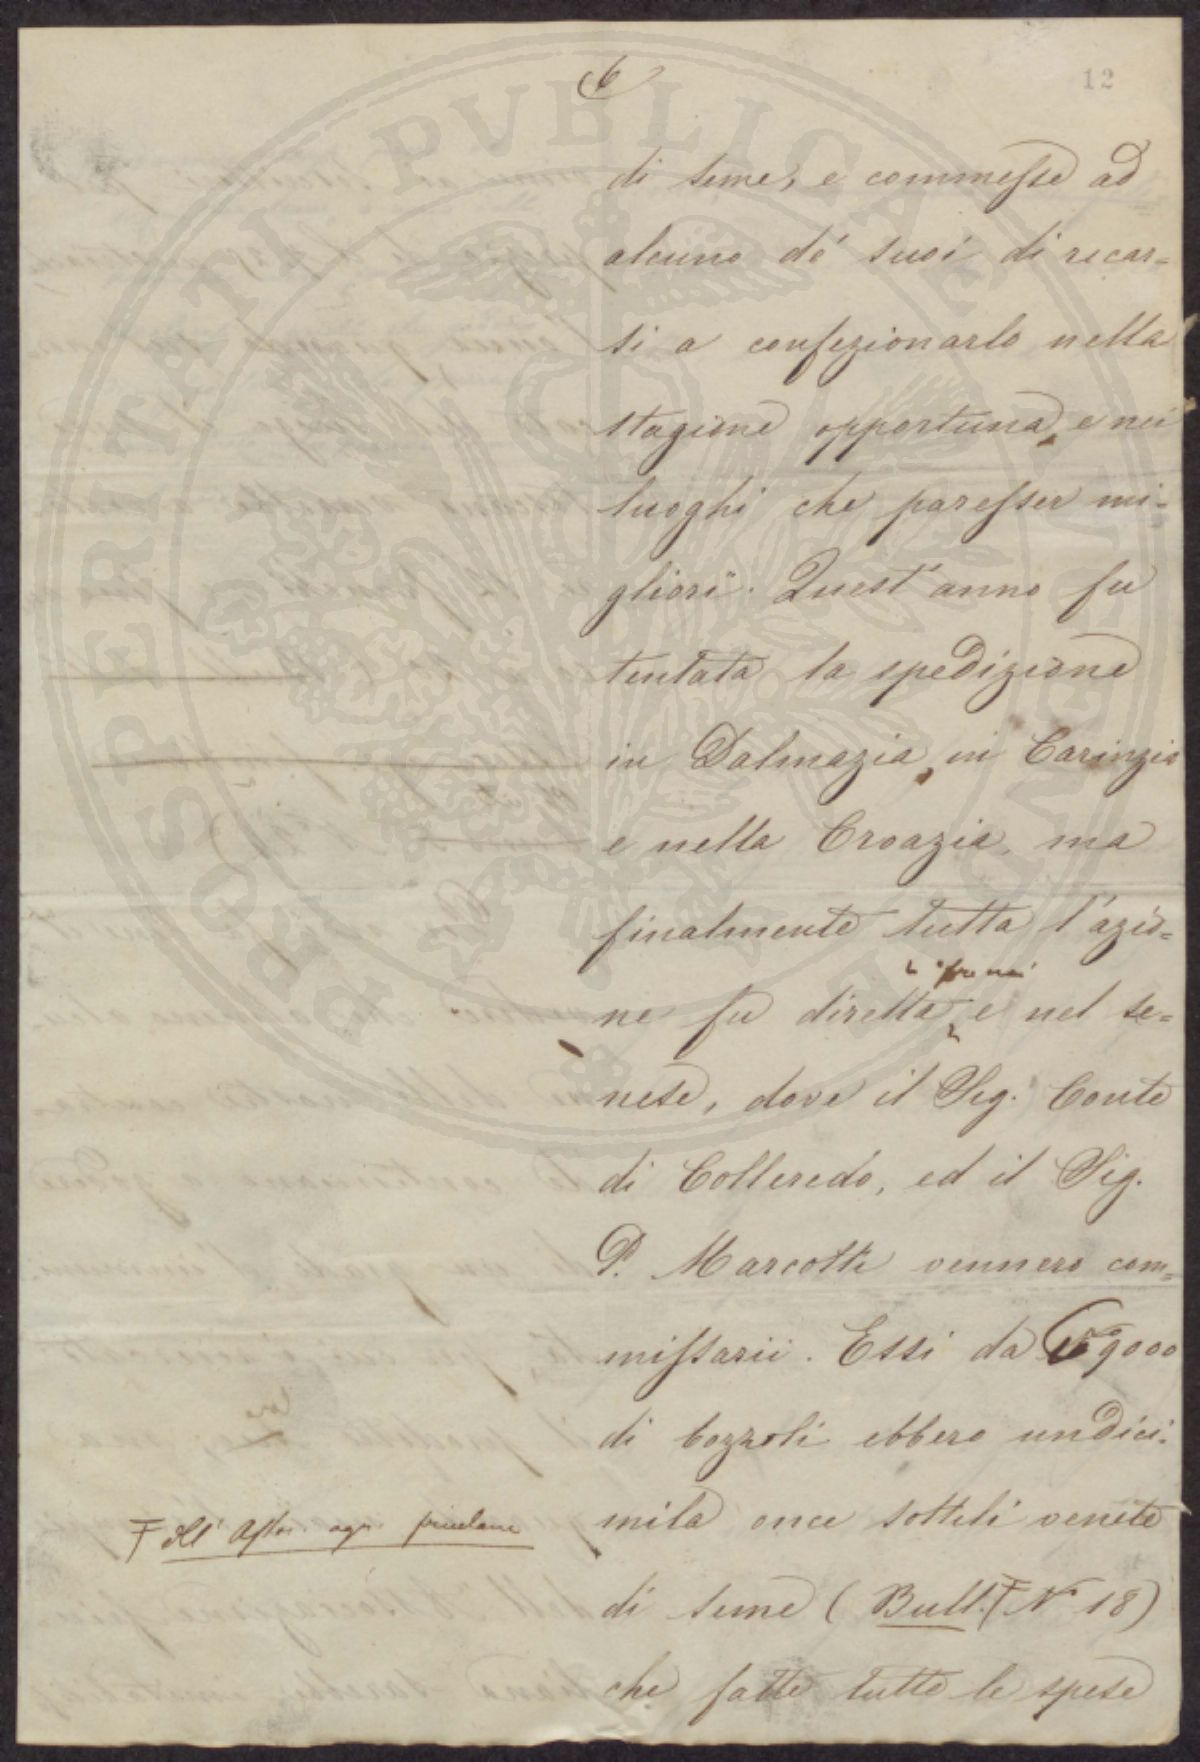 6
12
di seme, e commesse ad
alcuno de' suoi di recar=
si a confezionarlo nella
stagione opportuna, e nei
luoghi che paresser mi=
gliori. Quest'anno fu
tentata la spedizione
in Dalmazia, in Carinzia
e nella Croazia, ma
finalmente tutta l'azio=
ne fu diretta e nel se=
nese, dove il Sig. Conte
di Colleredo, ed il Sig.
P. Marcotti vennero com=
missarii. Essi da 9000
di bozzoli ebbero undici=
mila once sottili venete
di seme (Bull. F N° 18)
F dell' Assoc. agr. friulana
che fatte tutte le spese
PROSPERITATI PVBLICAE